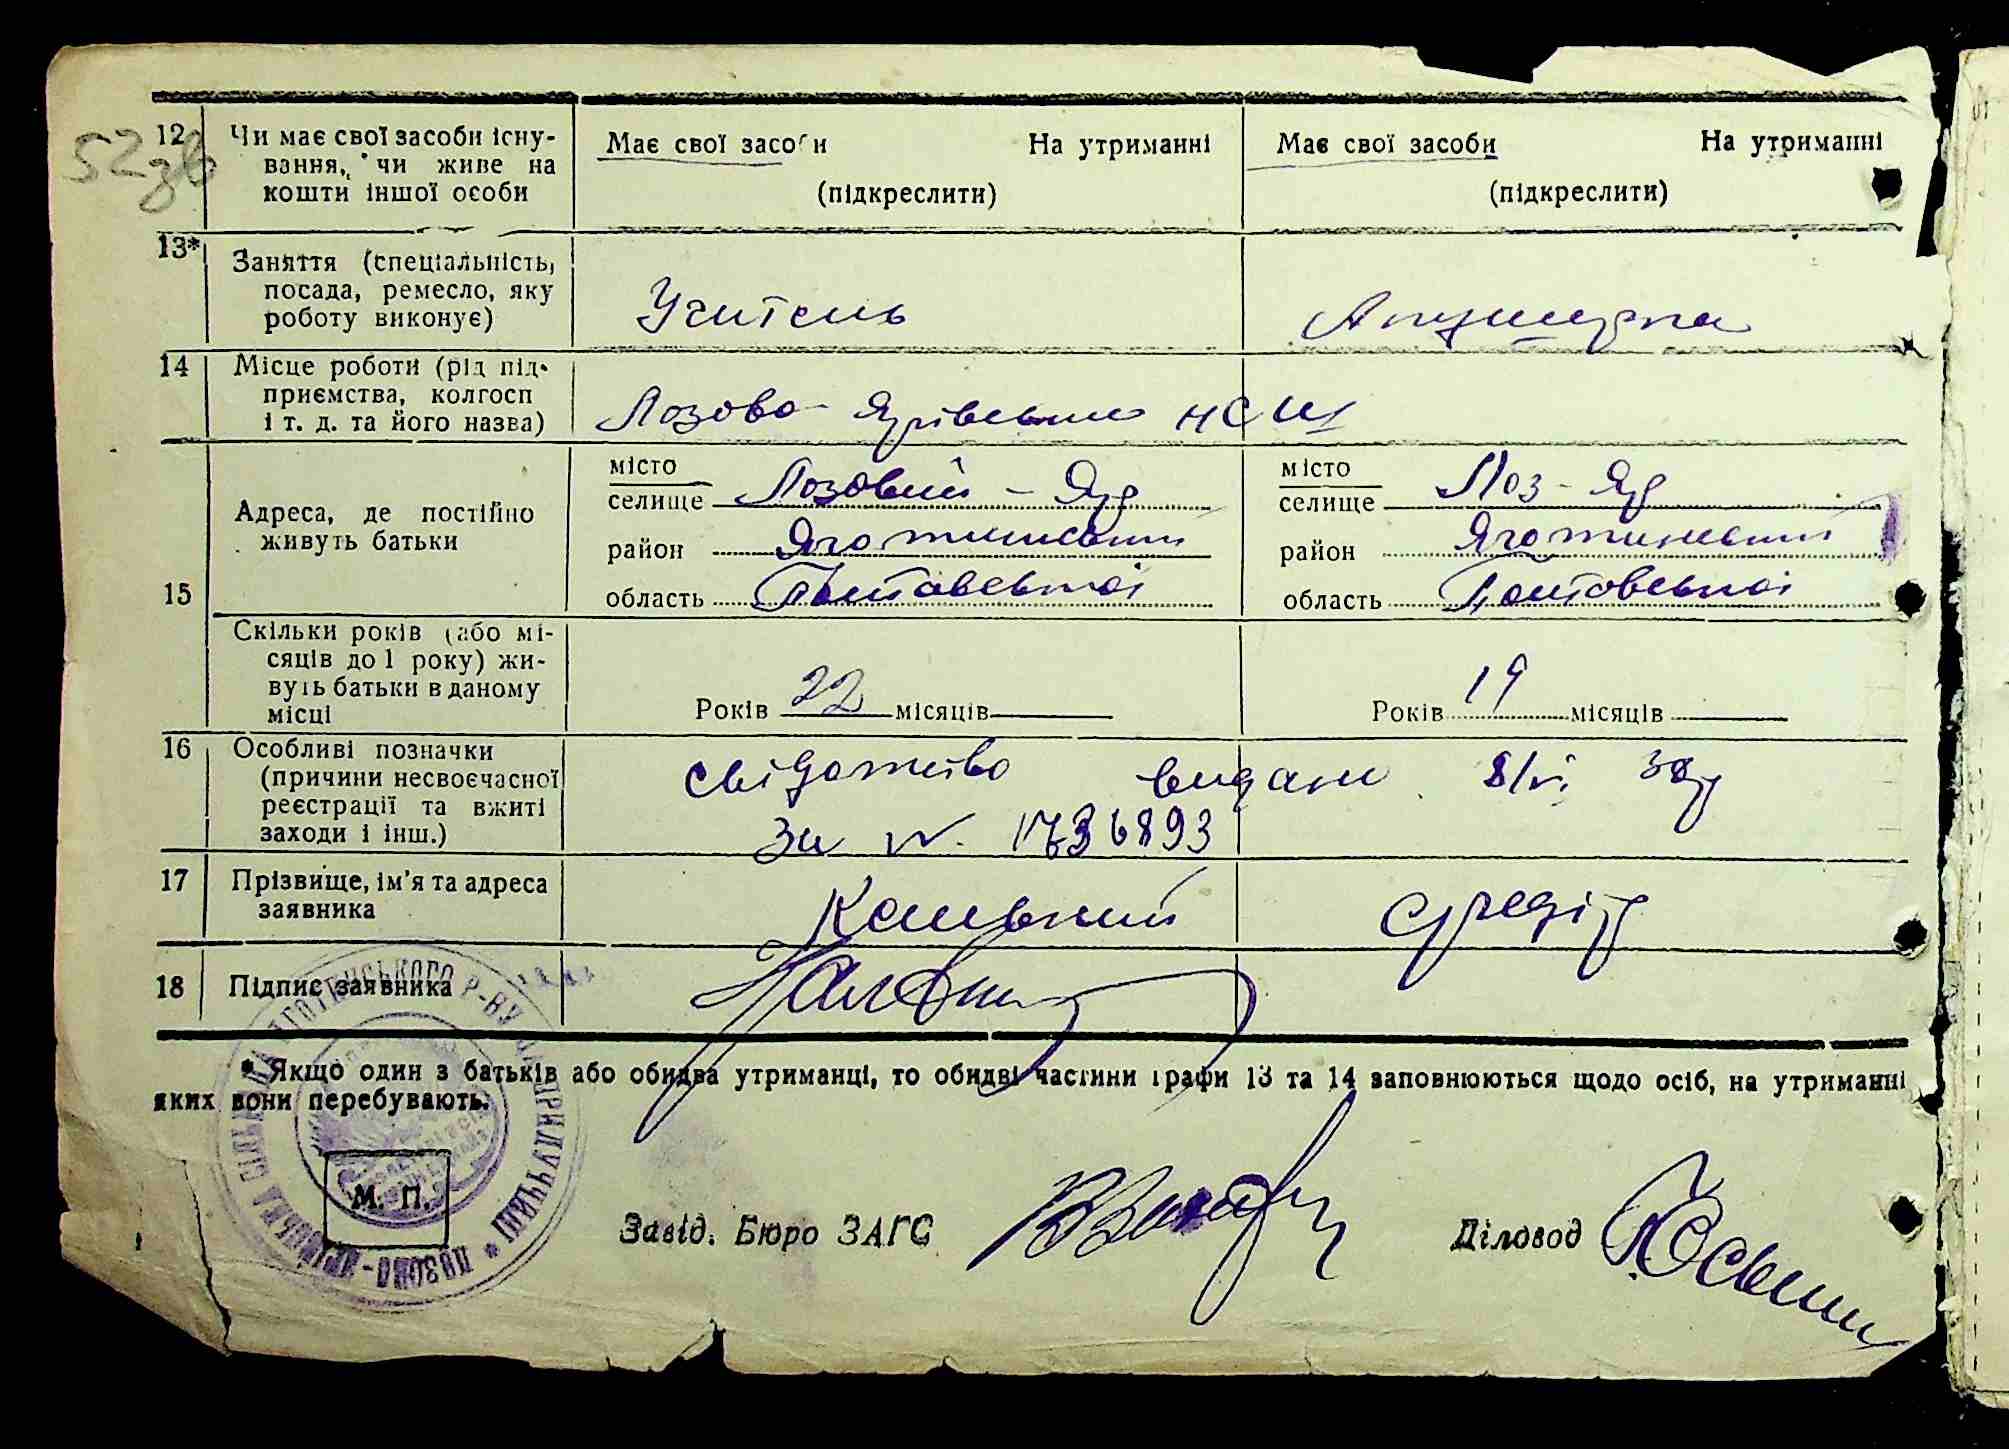 52зв
12
Чи має свої засоби існу-
вання, чи живе на
кошти іншої особи
Має свої засоби На утриманні
(підкреслити)
Має свої засоби На утриманні
(підкреслити)
13*
Заняття (спеціальність,
посада, ремесло, яку
роботу виконує)
Учитель
Акушерка
14
Місце роботи (рід під-
приємства, колгосп
і т. д. та його назва)
Лозово-Ярівська НСШ
15
Адреса, де постійно
живуть батьки
місто
селище Лозовий-Яр
район Яготинський
область Полтавської
місто
селище Лоз-Яр
район Яготинський
область Полтовської
Скільки років (або мі-
сяців до 1 року) жи-
вуть батьки в даному
місці
Років 22 місяців
Років 19 місяців
16
Особливі позначки
(причини несвоєчасної
реєстрації та вжиті
заходи і інш.)
свідоцтво видано 8/VI 38р
за №. 1736893
17
Прізвище, ім'я та адреса
заявника
18
Підпис заявника
* Якщо один з батьків або обидва утриманці, то обидві частини графи 13 та 14 заповнюються щодо осіб, на утриманні
яких вони перебувають.
М. П.
Завід. Бюро ЗАГС
Діловод